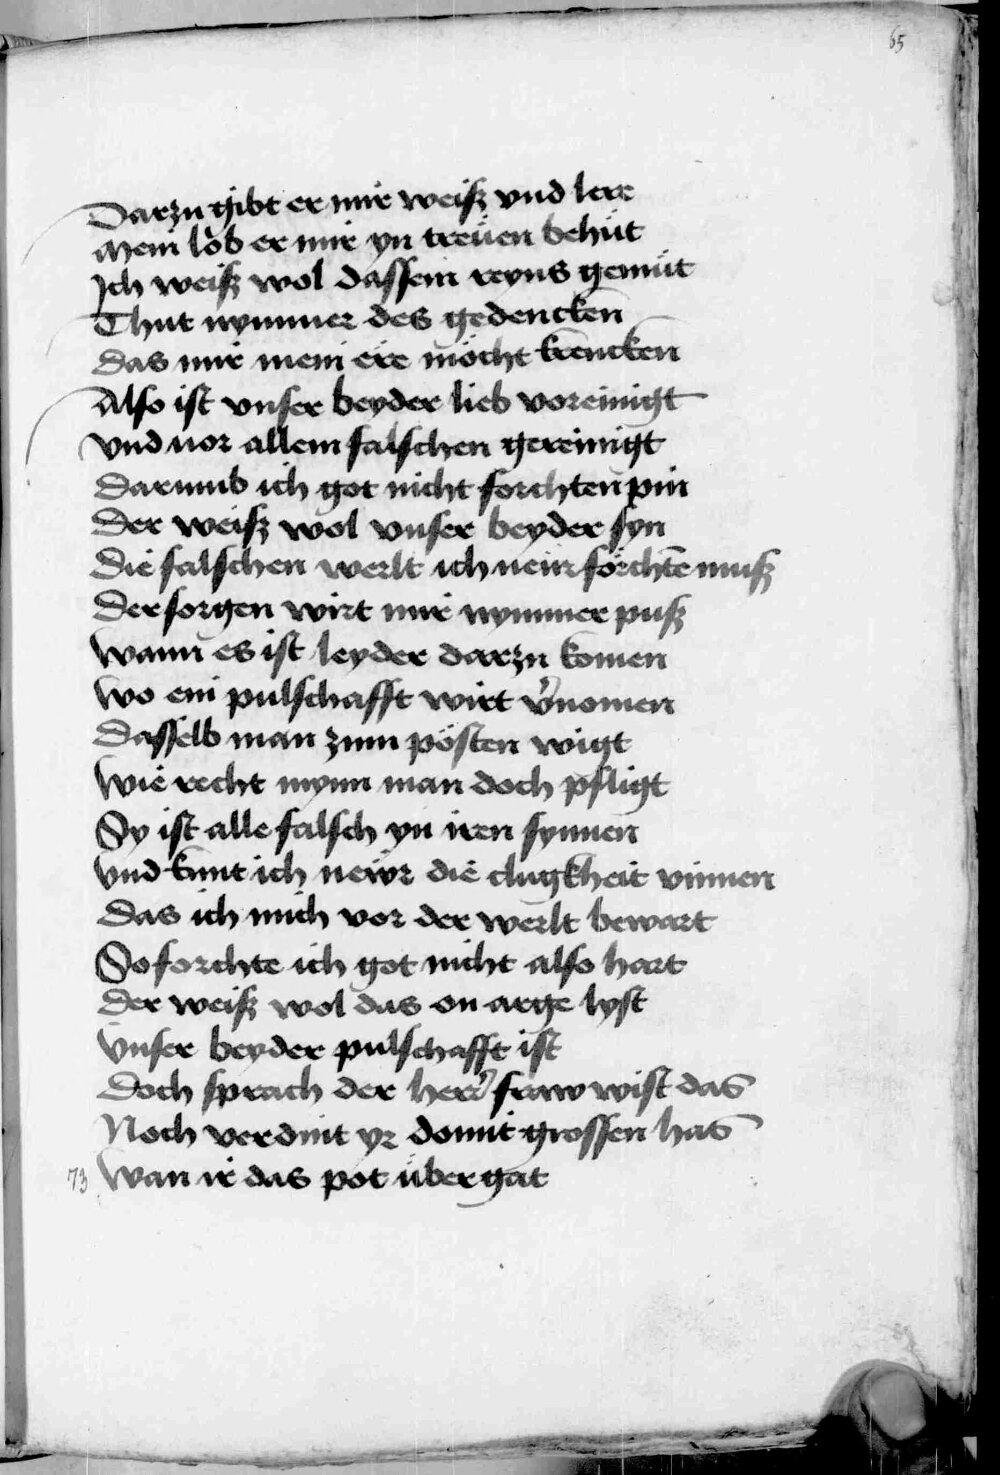 65
Darzu gibt er mir weiſz vnd lere
Mein lob er mir yn treüen behüt
Ich weiſz wol daſſein reyns gemüt
Thut nymmer des gedencken
das mir mein ere möcht krencken
Alſo iſt vnſer beyder lieb voreinigt
vnd vor allem falſchen gereinigt
darumb ich got nicht forchten pin
Der weiſz wol vnſer beyder ſyn
Die falſchen werlt ich neür förchtē muſz
Der ſorgen wirt mir nymmer puſz
wann es iſt leyder darzu komen
wo ein pulſchafft wirt v̾nomen
Daſſelb man zum pöſten wigt
wie recht mynn man doch pfligt
Sy iſt alle falſch yn iren ſynnen
vnd kunt ich newr die clugkheit vinnen
das ich mich vor der werlt bewart
So forchte ich got nicht alſo hart
der weiſz wol das on arge lyſt
vnſer beyder pulſchafft iſt
doch ſprach der herr̾ fraw wiſt das
Noch verdint yr domit groſſen has
73 wan ir das pot über gat